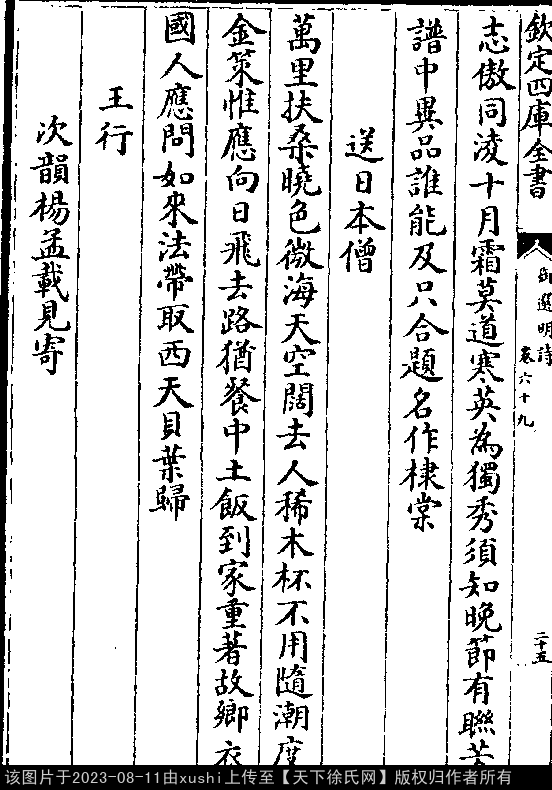 欽定四庫全書
御選明詩
卷六十九
二十五
志傲同淩十月霜莫道寒英為獨秀須知晚節有聯芳
譜中異品誰能及只合題名作棣棠
送日本僧
萬里扶桑曉色微海天空闊去人稀木杯不用隨潮度
金策惟應向日飛去路猶餐中土飯到家重著故鄉衣
國人應問如來法帶取西天貝葉歸
王行
次韻楊孟載見寄
该图片于2023-08-11由xushi上传至【天下徐氏网】版权归作者所有